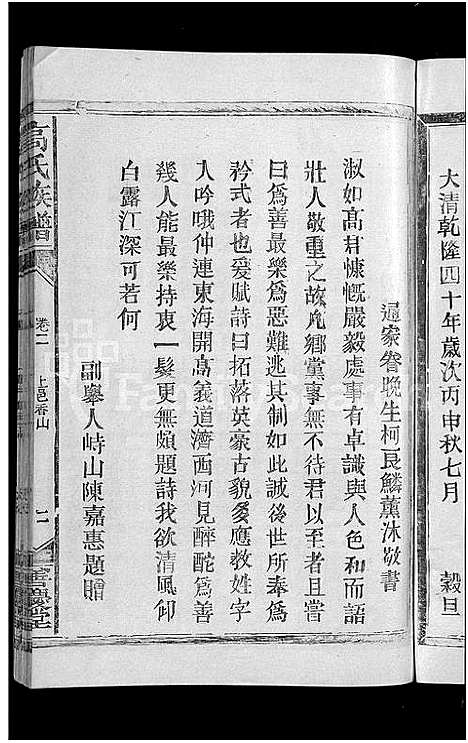 大清乾隆四十年歲次丙申秋七月　穀旦
通家眷晚生柯良鱗薰沐敬書
淑如高君慷慨嚴毅處事有卓識與人色和而語
壯人敬重之故凡鄉黨事無不待君以至者且嘗
曰爲善最樂爲惡難逃其制如此誠後世所奉爲
矜式者也爰賦詩曰拓落英豪古貌多應教姓字
人吟哦仲連東海開高義道濟西河見醉酡爲善
幾人能最樂持衷一髮更無頗題詩我欲清風仰
白露江深可若何
副舉人峙山陳嘉惠題贈
高氏族譜
卷二
上邑香山
二
善慶堂